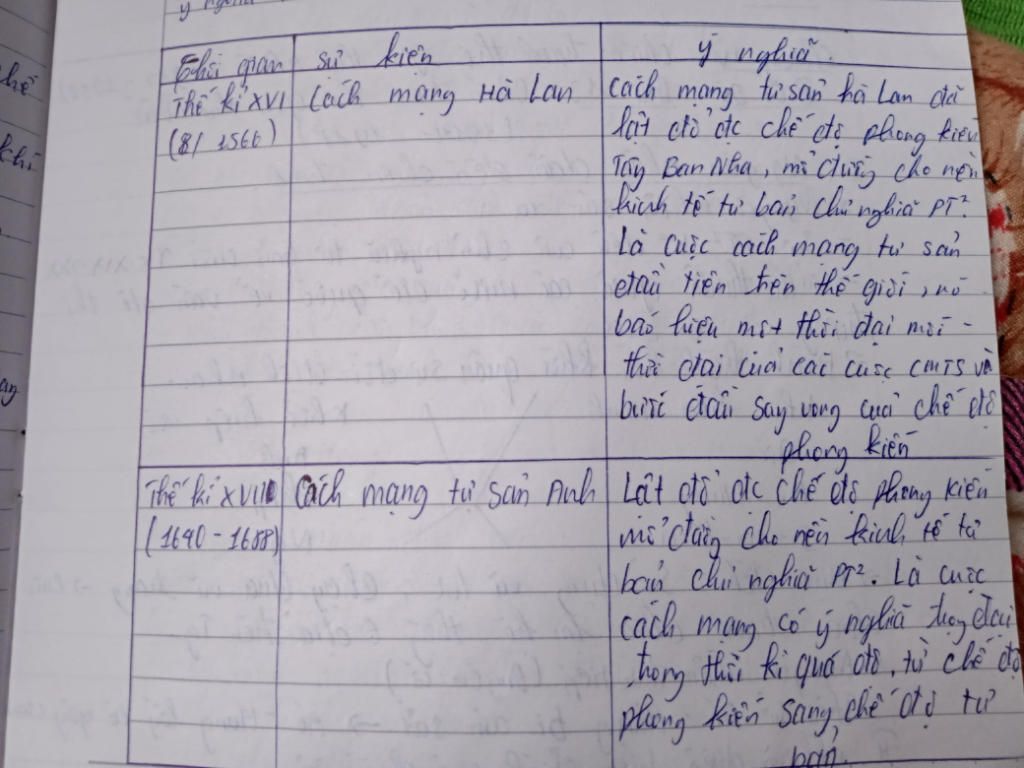 ý nghĩa
Thời gian sự kiện ý nghĩa
Thế kỉ XVI Cách mạng Hà Lan
(8/1566)
Cách mạng tư sản hà Lan đã
lật đổ đc chế độ phong kiến
Tây Ban Nha, mở đường cho nền
kinh tế tư bản chủ nghĩa PT².
Là cuộc cách mạng tư sản
đầu tiên trên thế giới, nó
báo hiệu một thời đại mới -
thời đại của các cuộc CMTS và
bước đầu suy vong của chế độ
phong kiến
Thế kỉ XVII Cách mạng tư sản Anh
(1640-1688)
Lật đổ đc chế độ phong kiến
mở đường cho nền kinh tế tư
bản chủ nghĩa PT². Là cuộc
cách mạng có ý nghĩa trọng đại
trong thời kì quá độ, từ chế độ
phong kiến sang chế độ tư
bản.